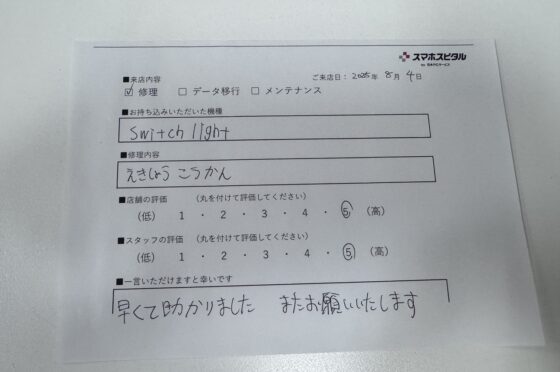 スマホスピタル
■来店内容
ご来店日：2025年 8月 4日
☑ 修理 □ データ移行 □ メンテナンス
■お持ち込みいただいた機種
Switch light
■修理内容
えきしょう こうかん
■店舗の評価 （丸を付けて評価してください）
（低） 1 ・ 2 ・ 3 ・ 4 ・ 5 （高）
■スタッフの評価 （丸を付けて評価してください）
（低） 1 ・ 2 ・ 3 ・ 4 ・ 5 （高）
■一言いただけますと幸いです
早くて助かりました またお願いいたします